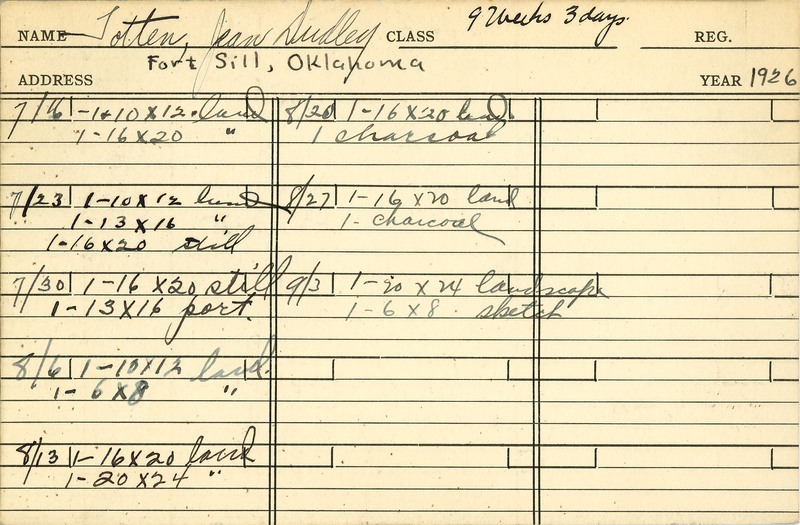 NAME Totten, Jean Dudley CLASS 9 Weeks 3 days. REG.
ADDRESS Fort Sill, Oklahoma YEAR 1926
7/16 1-10 x 12. land
1-16 x 20 "
7/23 1-10 x 12 land
1-13 x 16 "
1-16 x 20 still
7/30 1-16 x 20 still
1-13 x 16 port.
8/6 1-10 x 12 land.
1- 6 x 8 "
8/13 1-16 x 20 land
1-20 x 24 "
8/20 1-16 x 20 land.
1 charcoal
8/27 1-16 x 20 land
1- charcoal
9/3 1-20 x 24 landscape
1-6 x 8. sketch